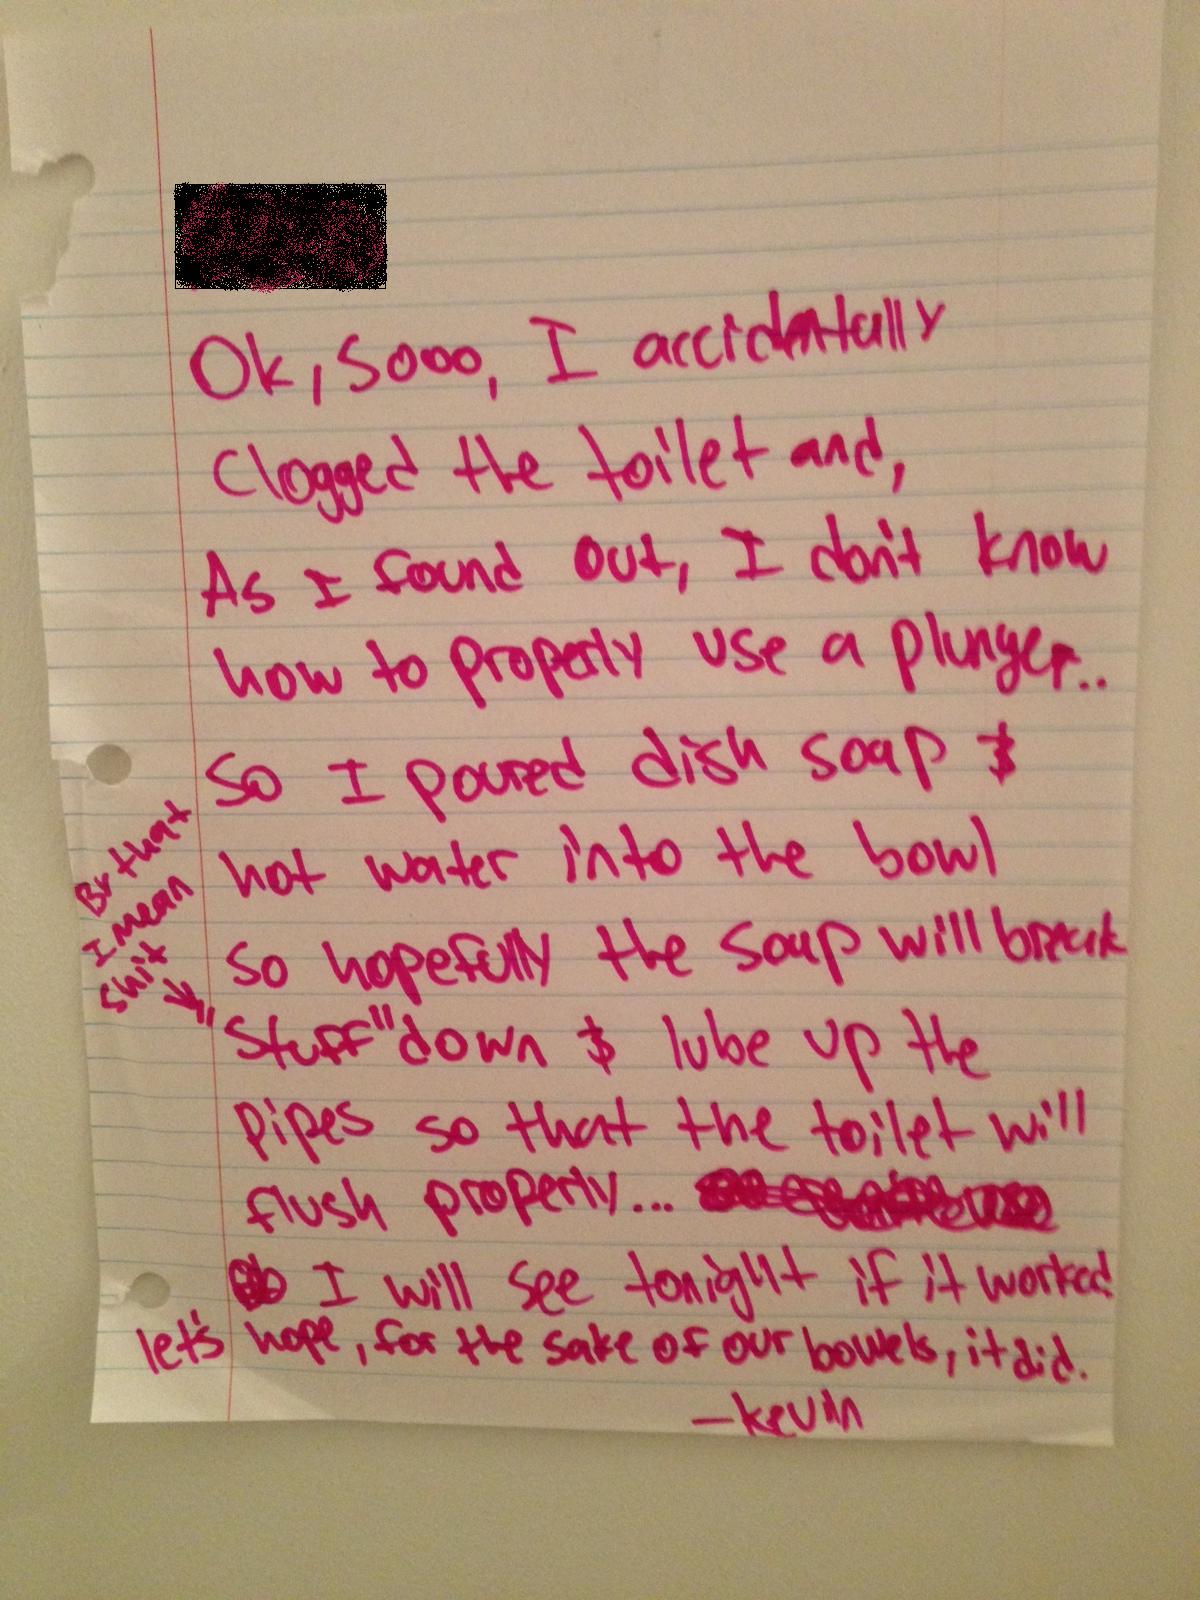 Ok, Sooo, I accidentally
Clogged the toilet and,
As I found out, I don't know
how to properly use a plunger..
So I poured dish soap &
hot water into the bowl
so hopefully the soap will break
"Stuff" down & lube up the
By that
I mean
shit
pipes so that the toilet will
flush properly...
I will see tonight if it worked
let's hope, for the sake of our bowels, it did.
-kevin